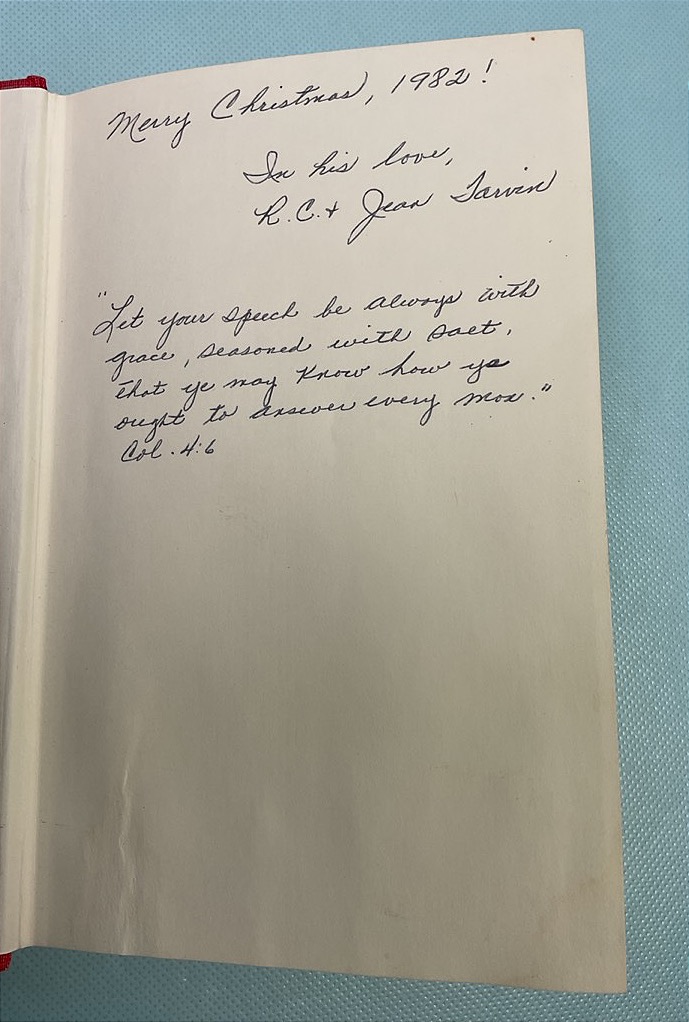 Merry Christmas, 1982!
In his love,
R.C. + Jean Tarvin
"Let your speech be always with
grace, seasoned with salt,
that ye may know how ye
ought to answer every man."
Col. 4:6